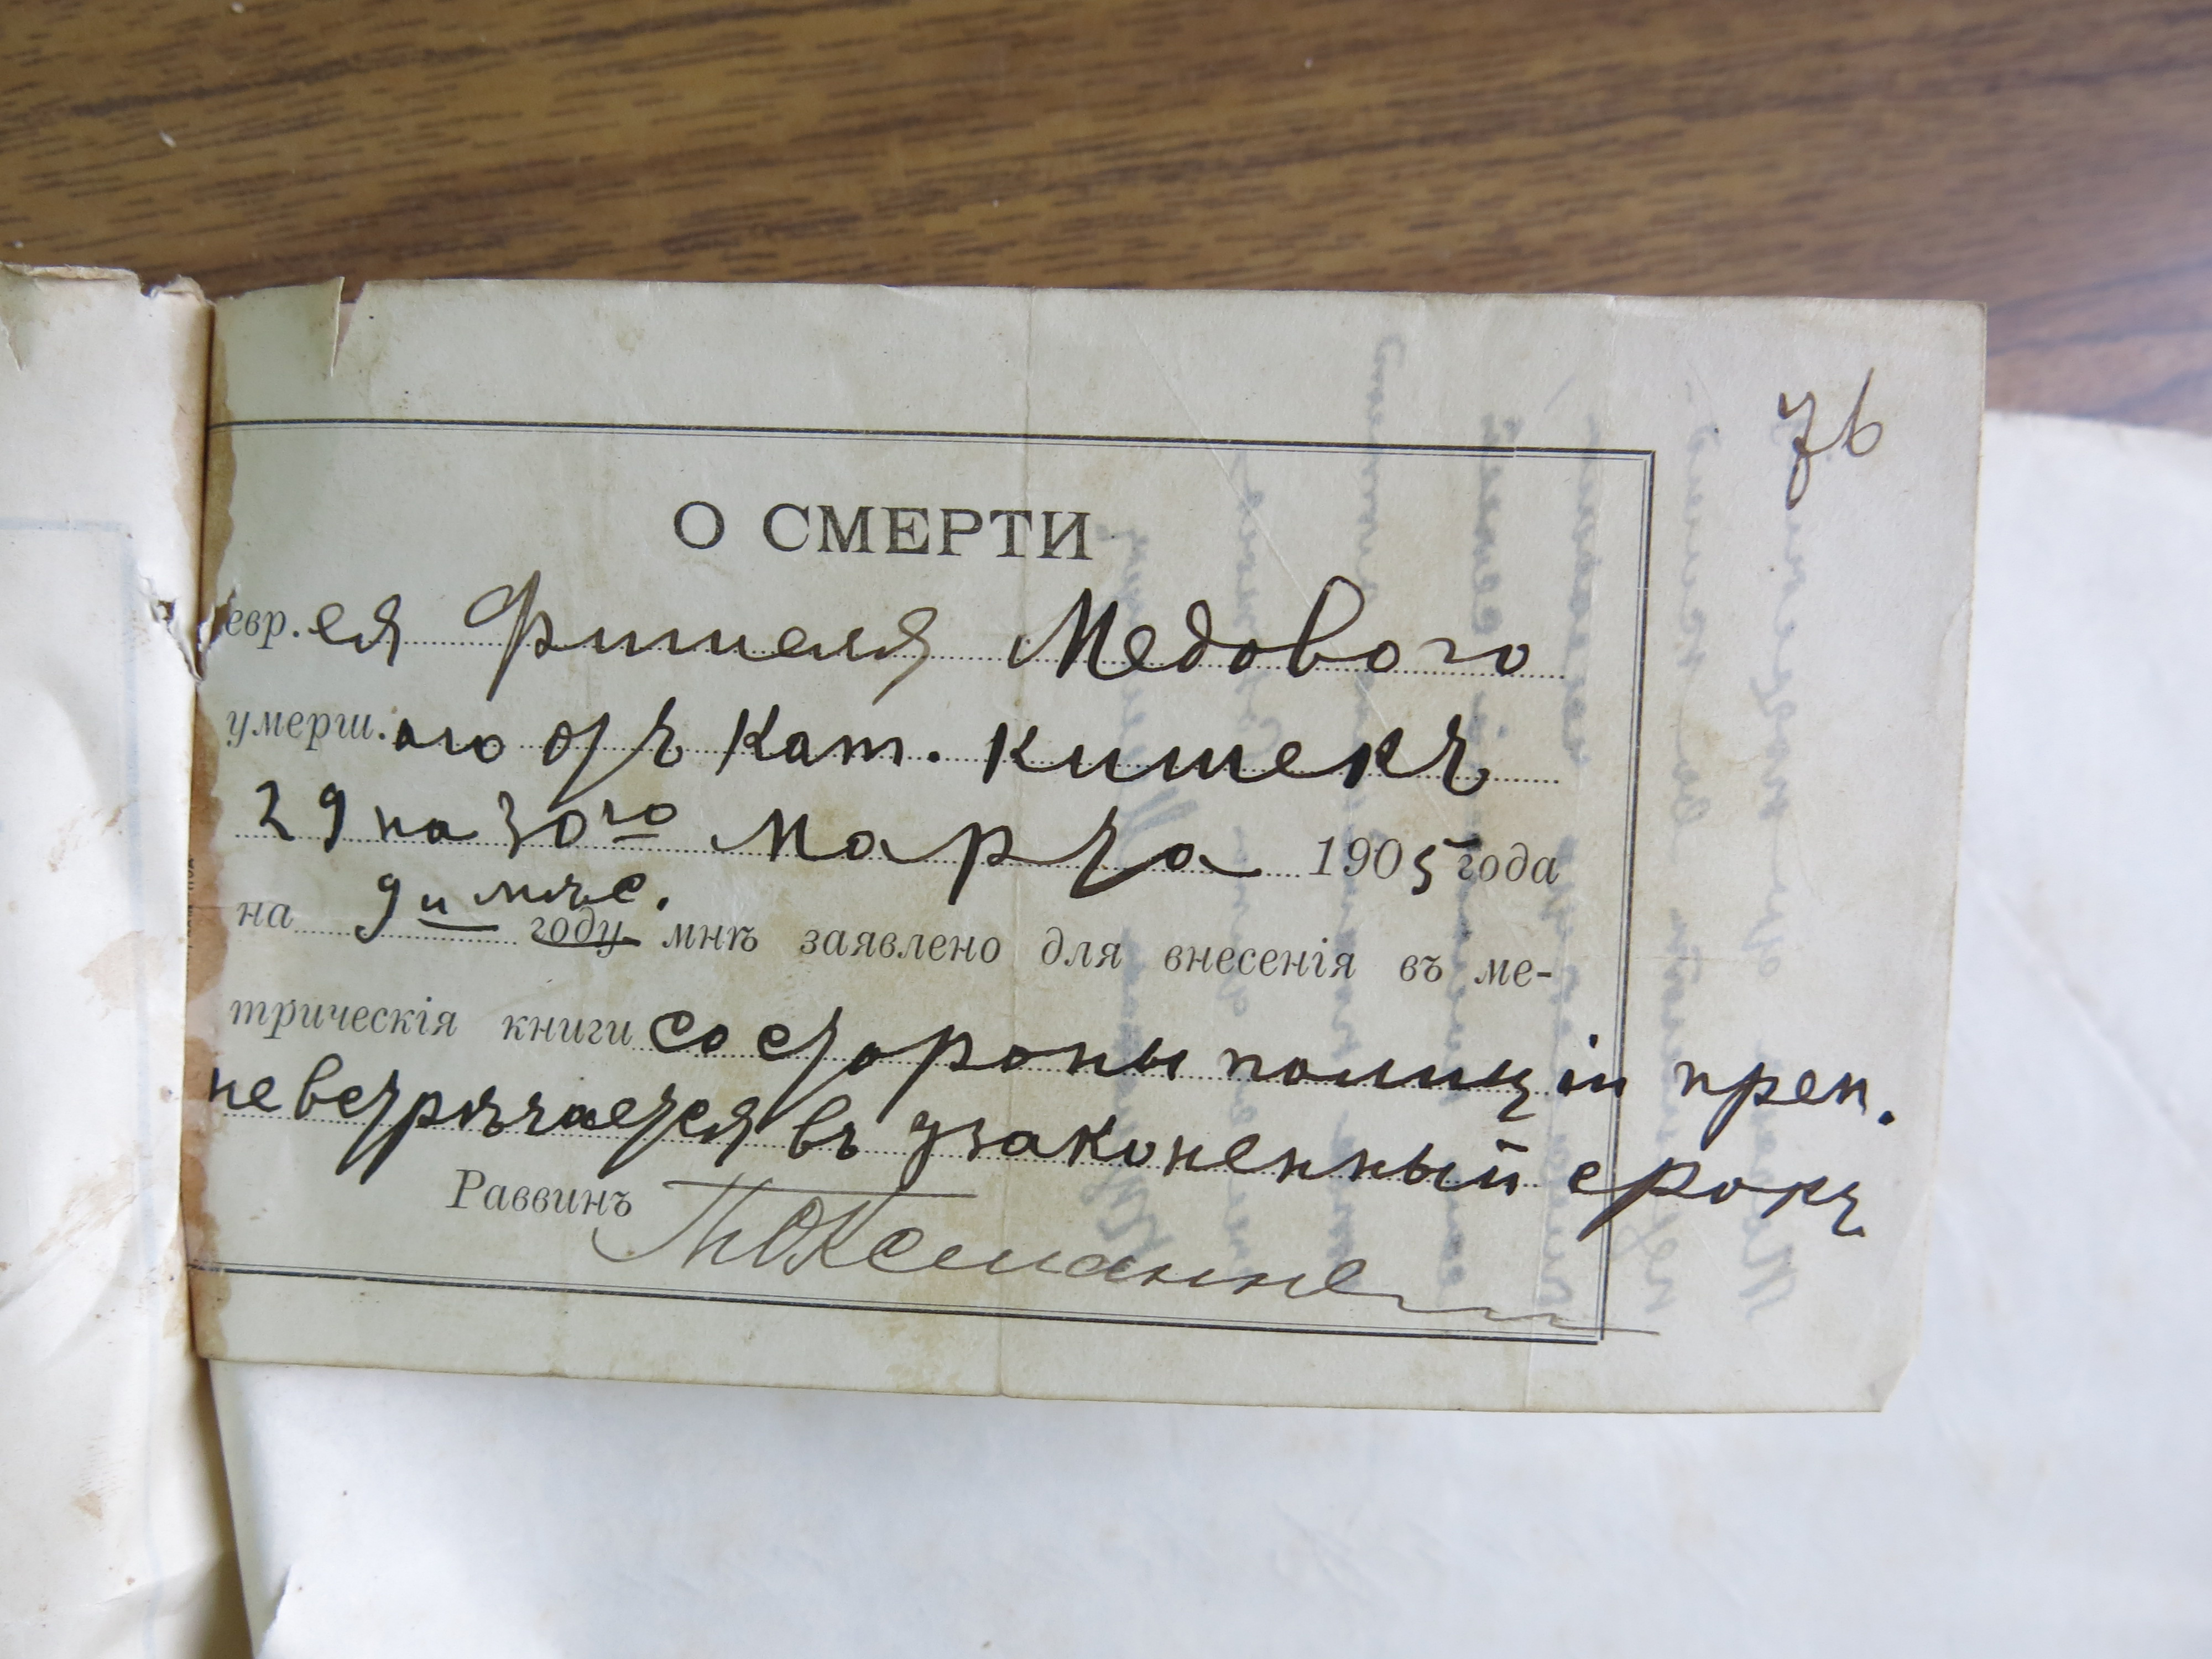 76
О СМЕРТИ
евр.ея Фишеля Медового
умерш.аго отъ кат. кишекъ
29 на 30го Марта 1905 года
на 9 и мѣс. году мнѣ заявлено для внесенія въ ме-
трическія книги со стороны полиціи преп.
не встрѣчается въ узаконенный срокъ
Раввинъ